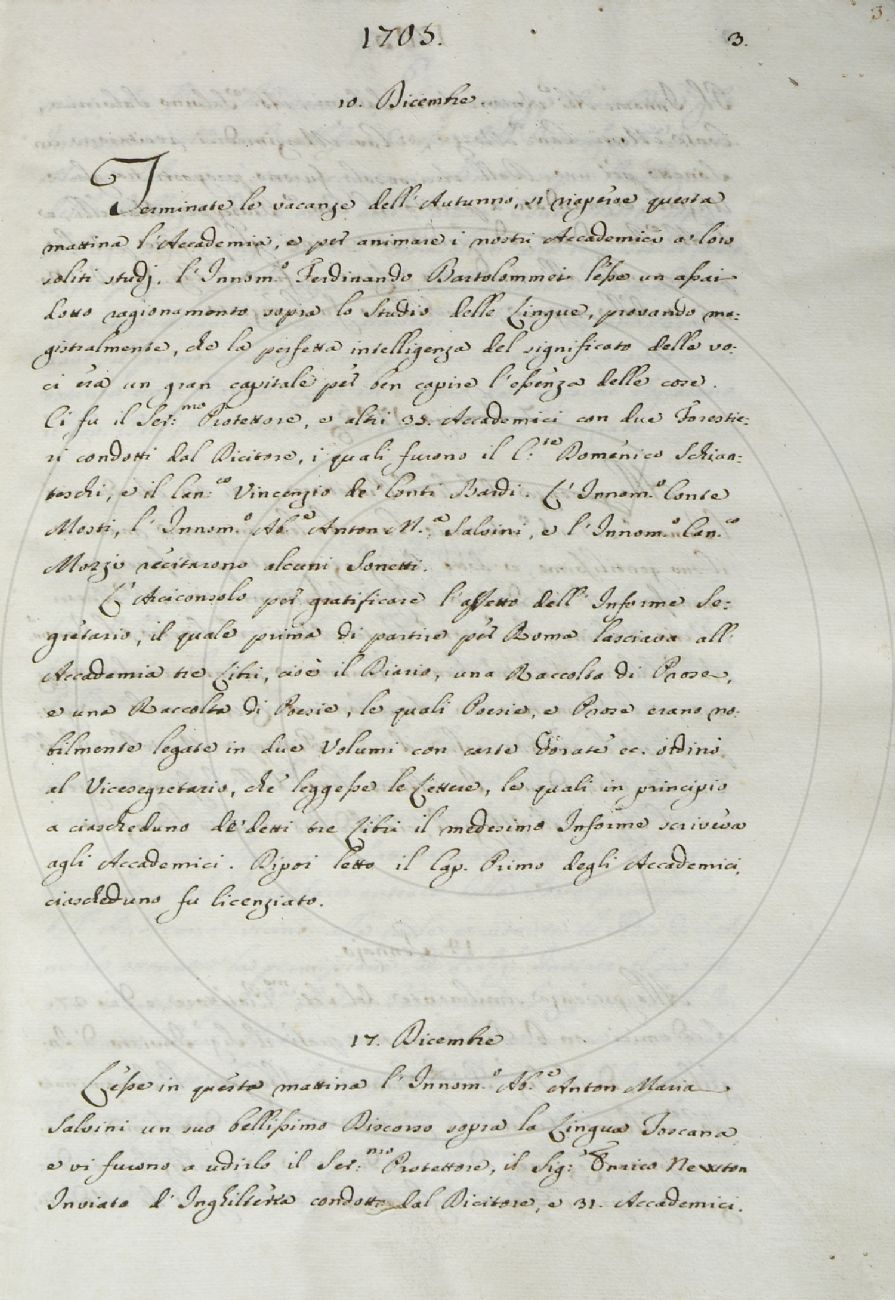 1705.
3.
3.
10. Dicembre.
Terminate le vacanze dell'Autunno, si riaperse questa
mattina l'Accademia, e per animare i nostri Accademici a' loro
soliti studj. l'Innom.º Ferdinando Bartolommei lesse un assai
dotto ragionamento sopra lo Studio delle Lingue, provando ma:
gistralmente, che la perfetta intelligenza del significato delle vo:
ci era un gran capitale per ben capire l'essenza delle cose.
Ci fu il Ser:mo Protettore, e altri 35. Accademici con due Forestie:
ri condotti dal Dicitore, i quali furono il C:te Domenico Schian:
teschi, e il Can:co Vincenzio de' Conti Bardi. L'Innom.º Conte
Mosti, l'Innom.º Ab.e Anton M.a Salvini, e l'Innom.º Can.co
Mozzi recitarono alcuni Sonetti.
L'Arciconsolo per gratificare l'affetto dell'Informe Se:
gretario, il quale prima di partire per Roma lasciava all'
Accademia tre Libri, cioè il Diario, una Raccolta di Prose,
e una Raccolta di Poesie, le quali Poesie, e Prose erano no:
bilmente legate in due Volumi con carte dorate ec. ordinò
al Vicesegretario, che leggesse le Lettere, le quali in principio
a ciascheduno de' detti tre Libri il medesimo Informe scriveva
agli Accademici. Dipoi letto il Cap. Primo degli Accademici,
ciascheduno fu licenziato.
17. Dicembre
Lesse in questa mattina l'Innom.º Ab.e Anton Maria
Salvini un suo bellissimo Discorso sopra la Lingua Toscana
e vi furono a udirlo il Ser:mo Protettore, il Sig: Enrico Newton
Inviato d'Inghilterra condotto dal Dicitore, e 31. Accademici.